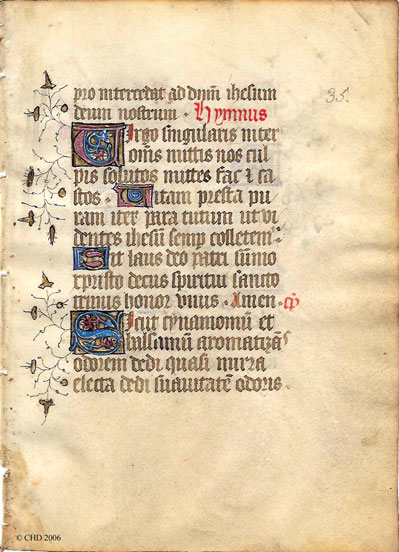 pro intercedat ad dñm ihesum
deum nostrum. Hymnus
35.
Virgo singularis inter
om̄is mittis nos cul
pis solutos mittes fac & ca
stos. Vitam presta pu
ram iter para tutum ut vi
dentes ihesū semp colletem:
Sit laus deo patri sūmo
xpristo decus spiritui sancto
trinus honor vnus. Amen. cp̄
Sicut cynamomū et
balsamū aromatizās
odorem dedi quasi mirra
electa dedi suauitatē odoris.
© CHD 2006